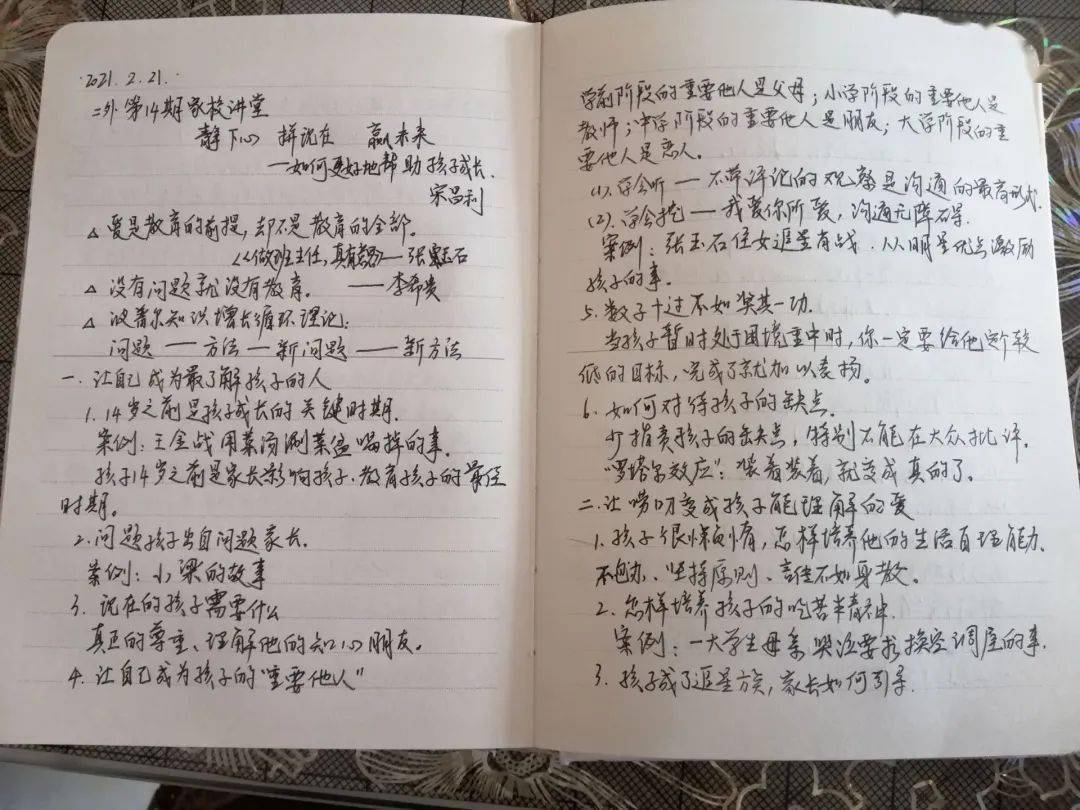 2021.2.21.
二外第14期家校讲堂
静下心 拼现在 赢未来
—如何更好地帮助孩子成长.
宋昌利
△ 爱是教育的前提,却不是教育的全部。
《做班主任,真有意思》—张玉石
△ 没有问题就没有教育。 ——李希贵
△ 波普尔知识增长循环理论:
问题——方法—新问题——新方法
一.让自己成为最了解孩子的人
1.14岁之前是孩子成长的关键时期.
案例:王金战用菜汤涮菜盆喝掉的事.
孩子14岁之前是家长影响孩子、教育孩子的最佳
时期。
2.问题孩子出自问题家长.
案例:小梁的故事
3.现在的孩子需要什么
真正的尊重、理解他的知心朋友。
4.让自己成为孩子的“重要他人”
学前阶段的重要他人是父母;小学阶段的重要他人是
教师;中学阶段的重要他人是朋友;大学阶段的重
要他人是恋人。
(1).学会听——不带评论的观察是沟通的最高形式.
(2).学会说——我爱你所爱,沟通无障碍.
案例:张玉石侄女追星肖战.从明星优点激励
孩子的事.
5.数子十过不如奖其一功.
当孩子暂时处于困境重中时,你一定要给他定个较
低的目标,完成了就加以表扬。
6.如何对待孩子的缺点.
少指责孩子的缺点,特别不能在大众批评.
“罗塔尔效应”:装着装着,就变成真的了。
二.让唠叨变成孩子能理解的爱
1.孩子很懒惰,怎样培养他的生活自理能力.
不包办、坚持原则、言传不如身教。
2.怎样培养孩子的吃苦精神.
案例:一大学生母亲哭泣要求换空调屋的事.
3.孩子成了追星族,家长如何引导.